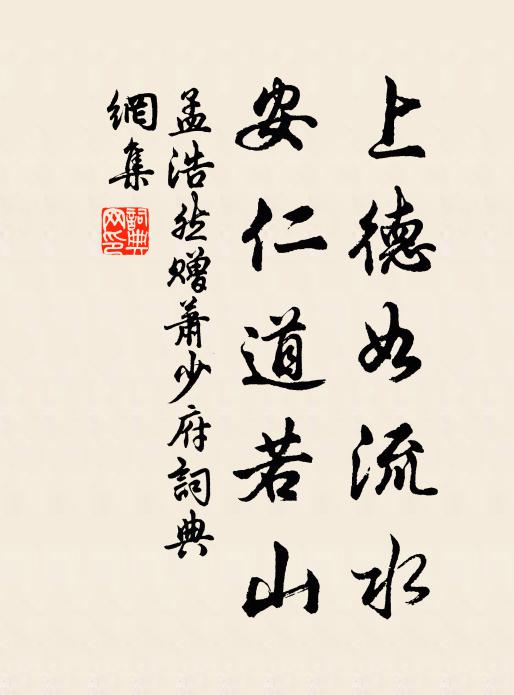 上德如流水
安仁道若山
孟浩然赠萧少府詞典
網集
詞典网印